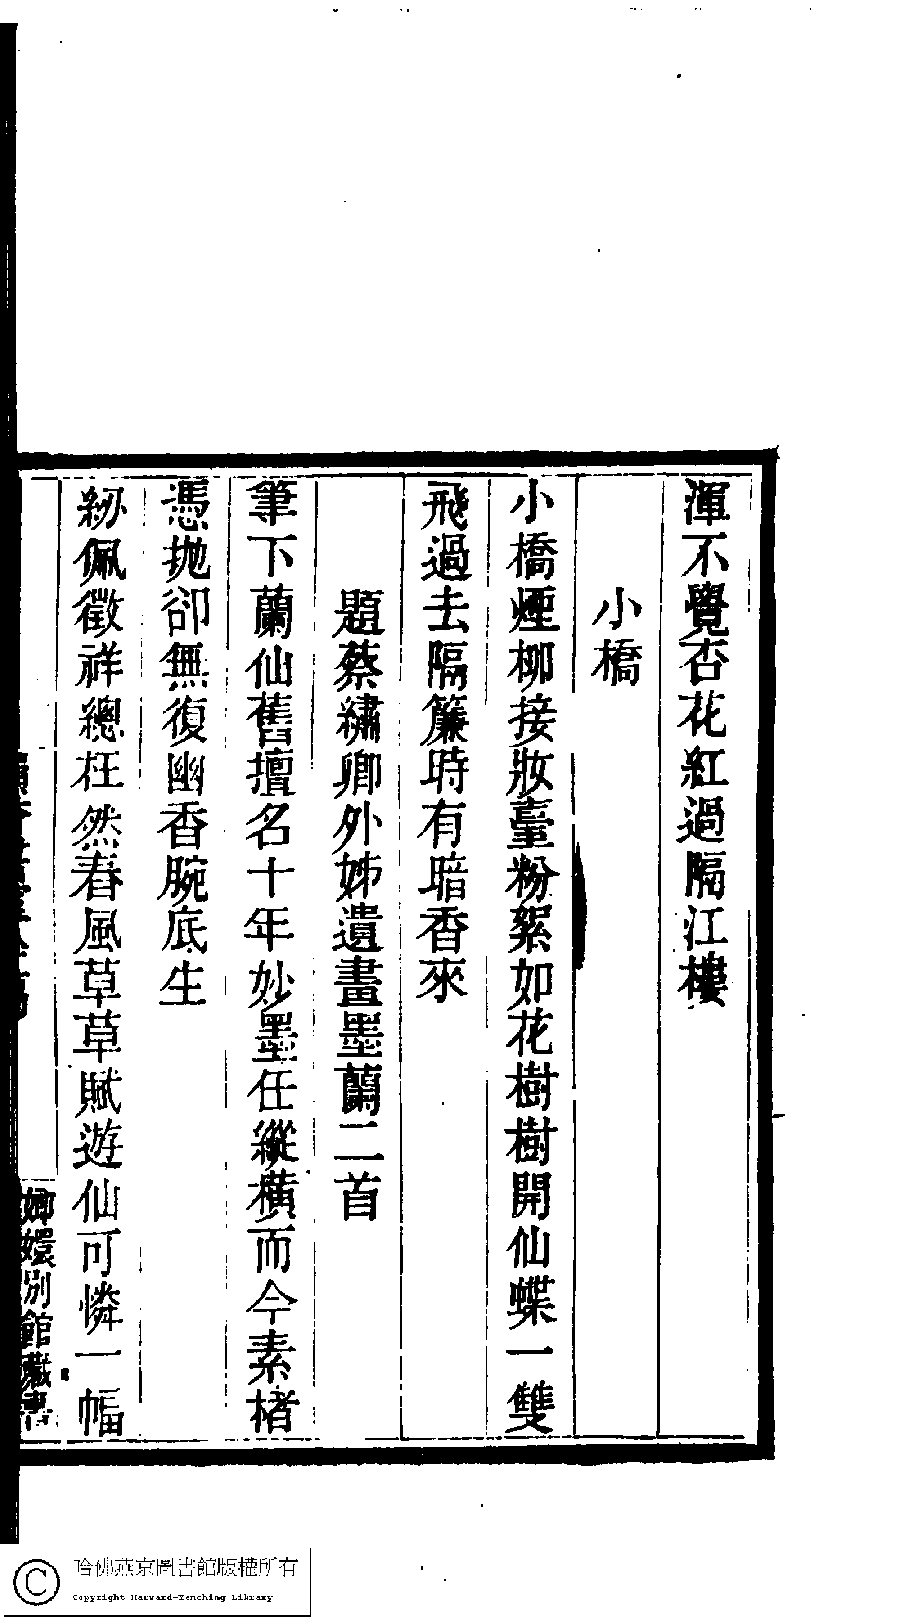 渾不覺杏花紅過隔江樓
小橋
小橋煙柳接妝臺粉絮如花樹樹開仙蝶一雙
飛過去隔簾時有暗香來
題蔡繡卿外姊遺畫墨蘭二首
筆下蘭仙舊擅名十年妙墨任縱橫而今素楮
憑拋卻無復幽香腕底生
紉佩徵祥總枉然春風草草賦遊仙可憐一幅
嫏嬛別館藏書
哈佛燕京圖書館版權所有
Copyright Harvard-Yenching Library